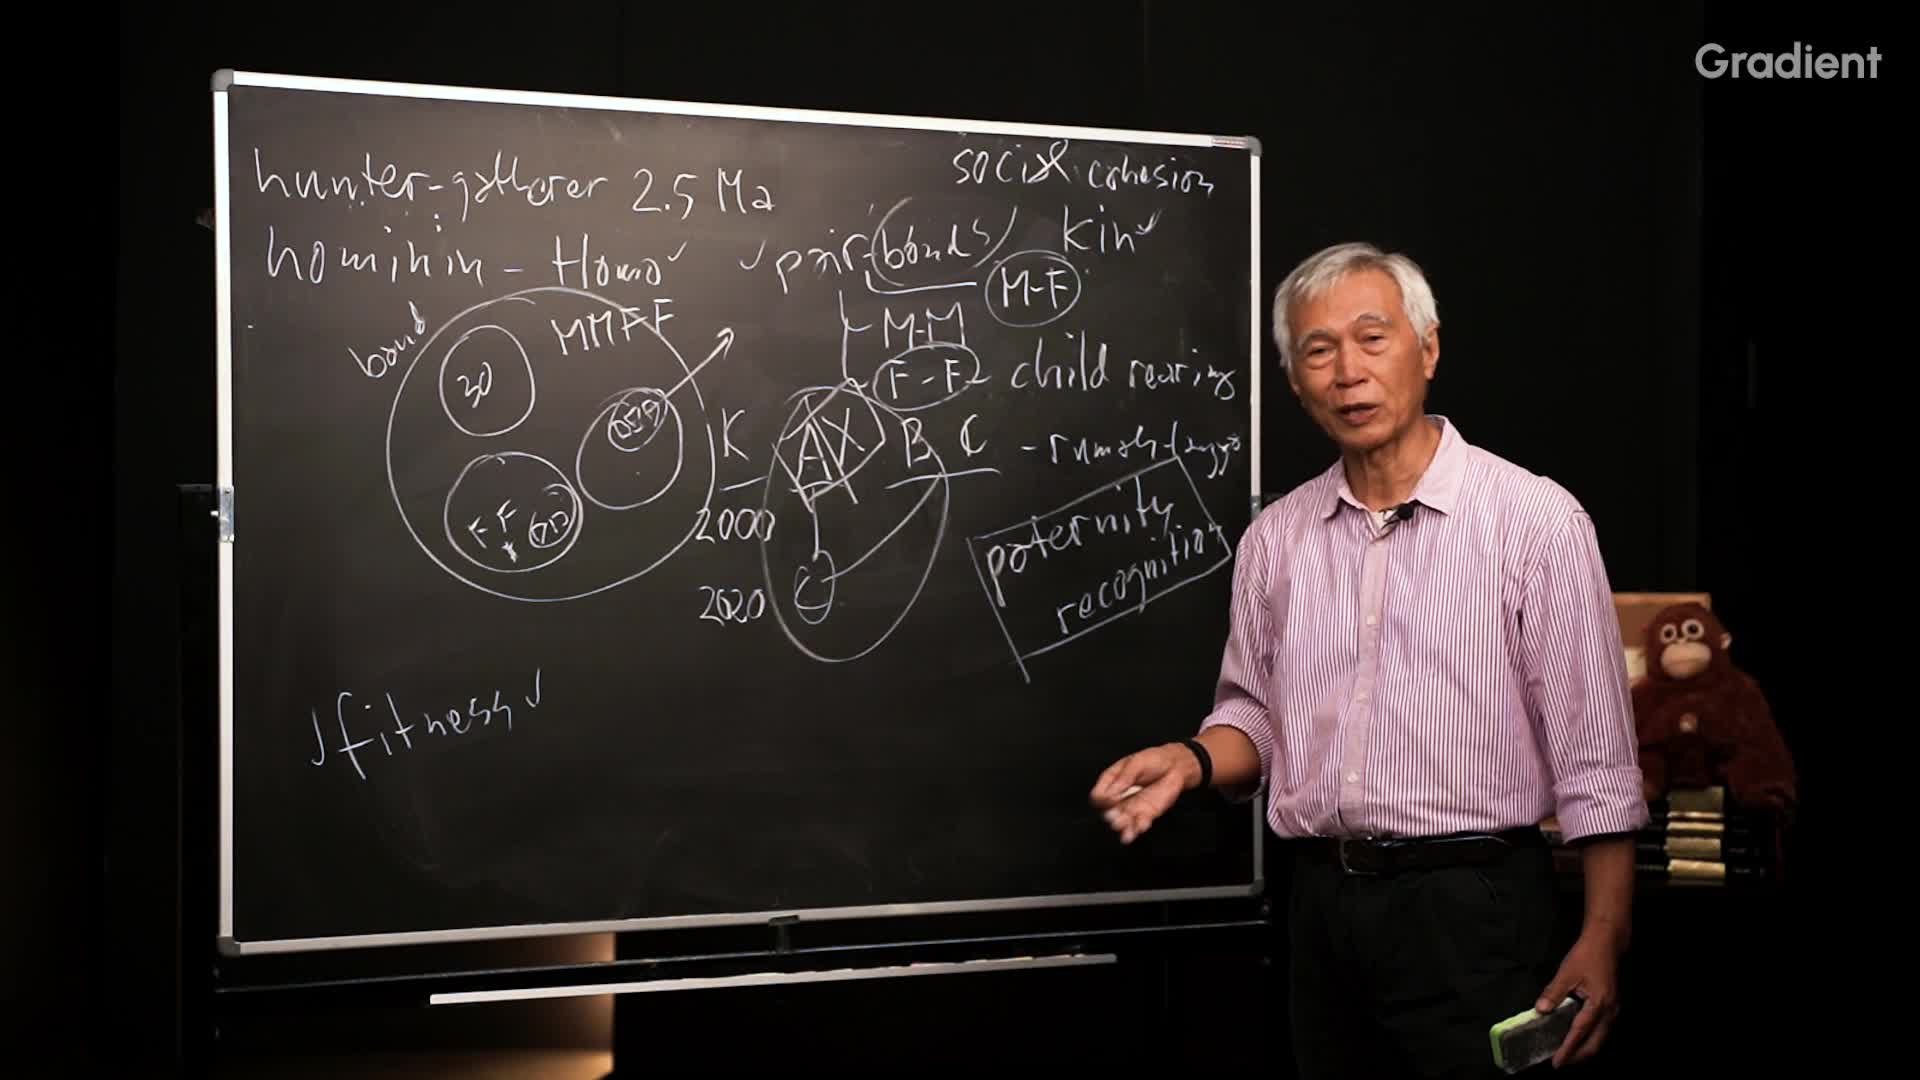 Gradient
hunter-gatherer 2.5 Ma
social cohesion
hominin - Homo ✓
✓ pair-bonds
Kin ✓
M-F
band
MMFF
M-M
30
F-F - child rearing
K
A X
B C
F F
2000
2020
paternity
recognition
✓ fitness ✓